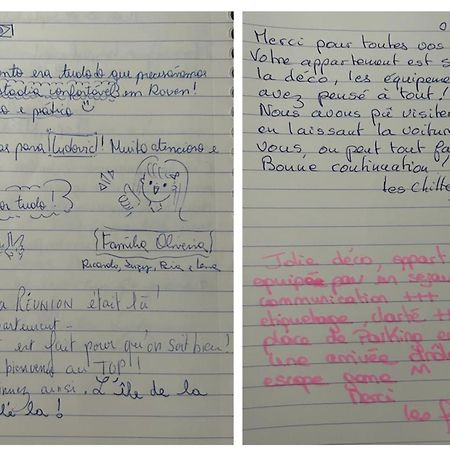 ento era tudo do que precisávamos
estadia confortável em Rouen!
o e prático
as para Ludovic! Muito atencioso e
or tudo!
Família Oliveira
Ricardo, Suzy,
a RÉUNION était là!
partement -
est fait pour qu'on soit bien!
bienvenue au TOP!!
nuez ainsi. L'île de la
là!
Merci pour toutes vos
Votre appartement est s
la déco, les équipeme
avez pensé à tout!
Nous avons pu visiter
en laissant la voitur
vous, on peut tout fa
Bonne continuation!
Les Ch'ti
Jolie déco, appart
équipée pour un séjour
communication +++
etiquetage clarté ++
place de Parking e
une arrivée drôl
escape game
Merci
les f